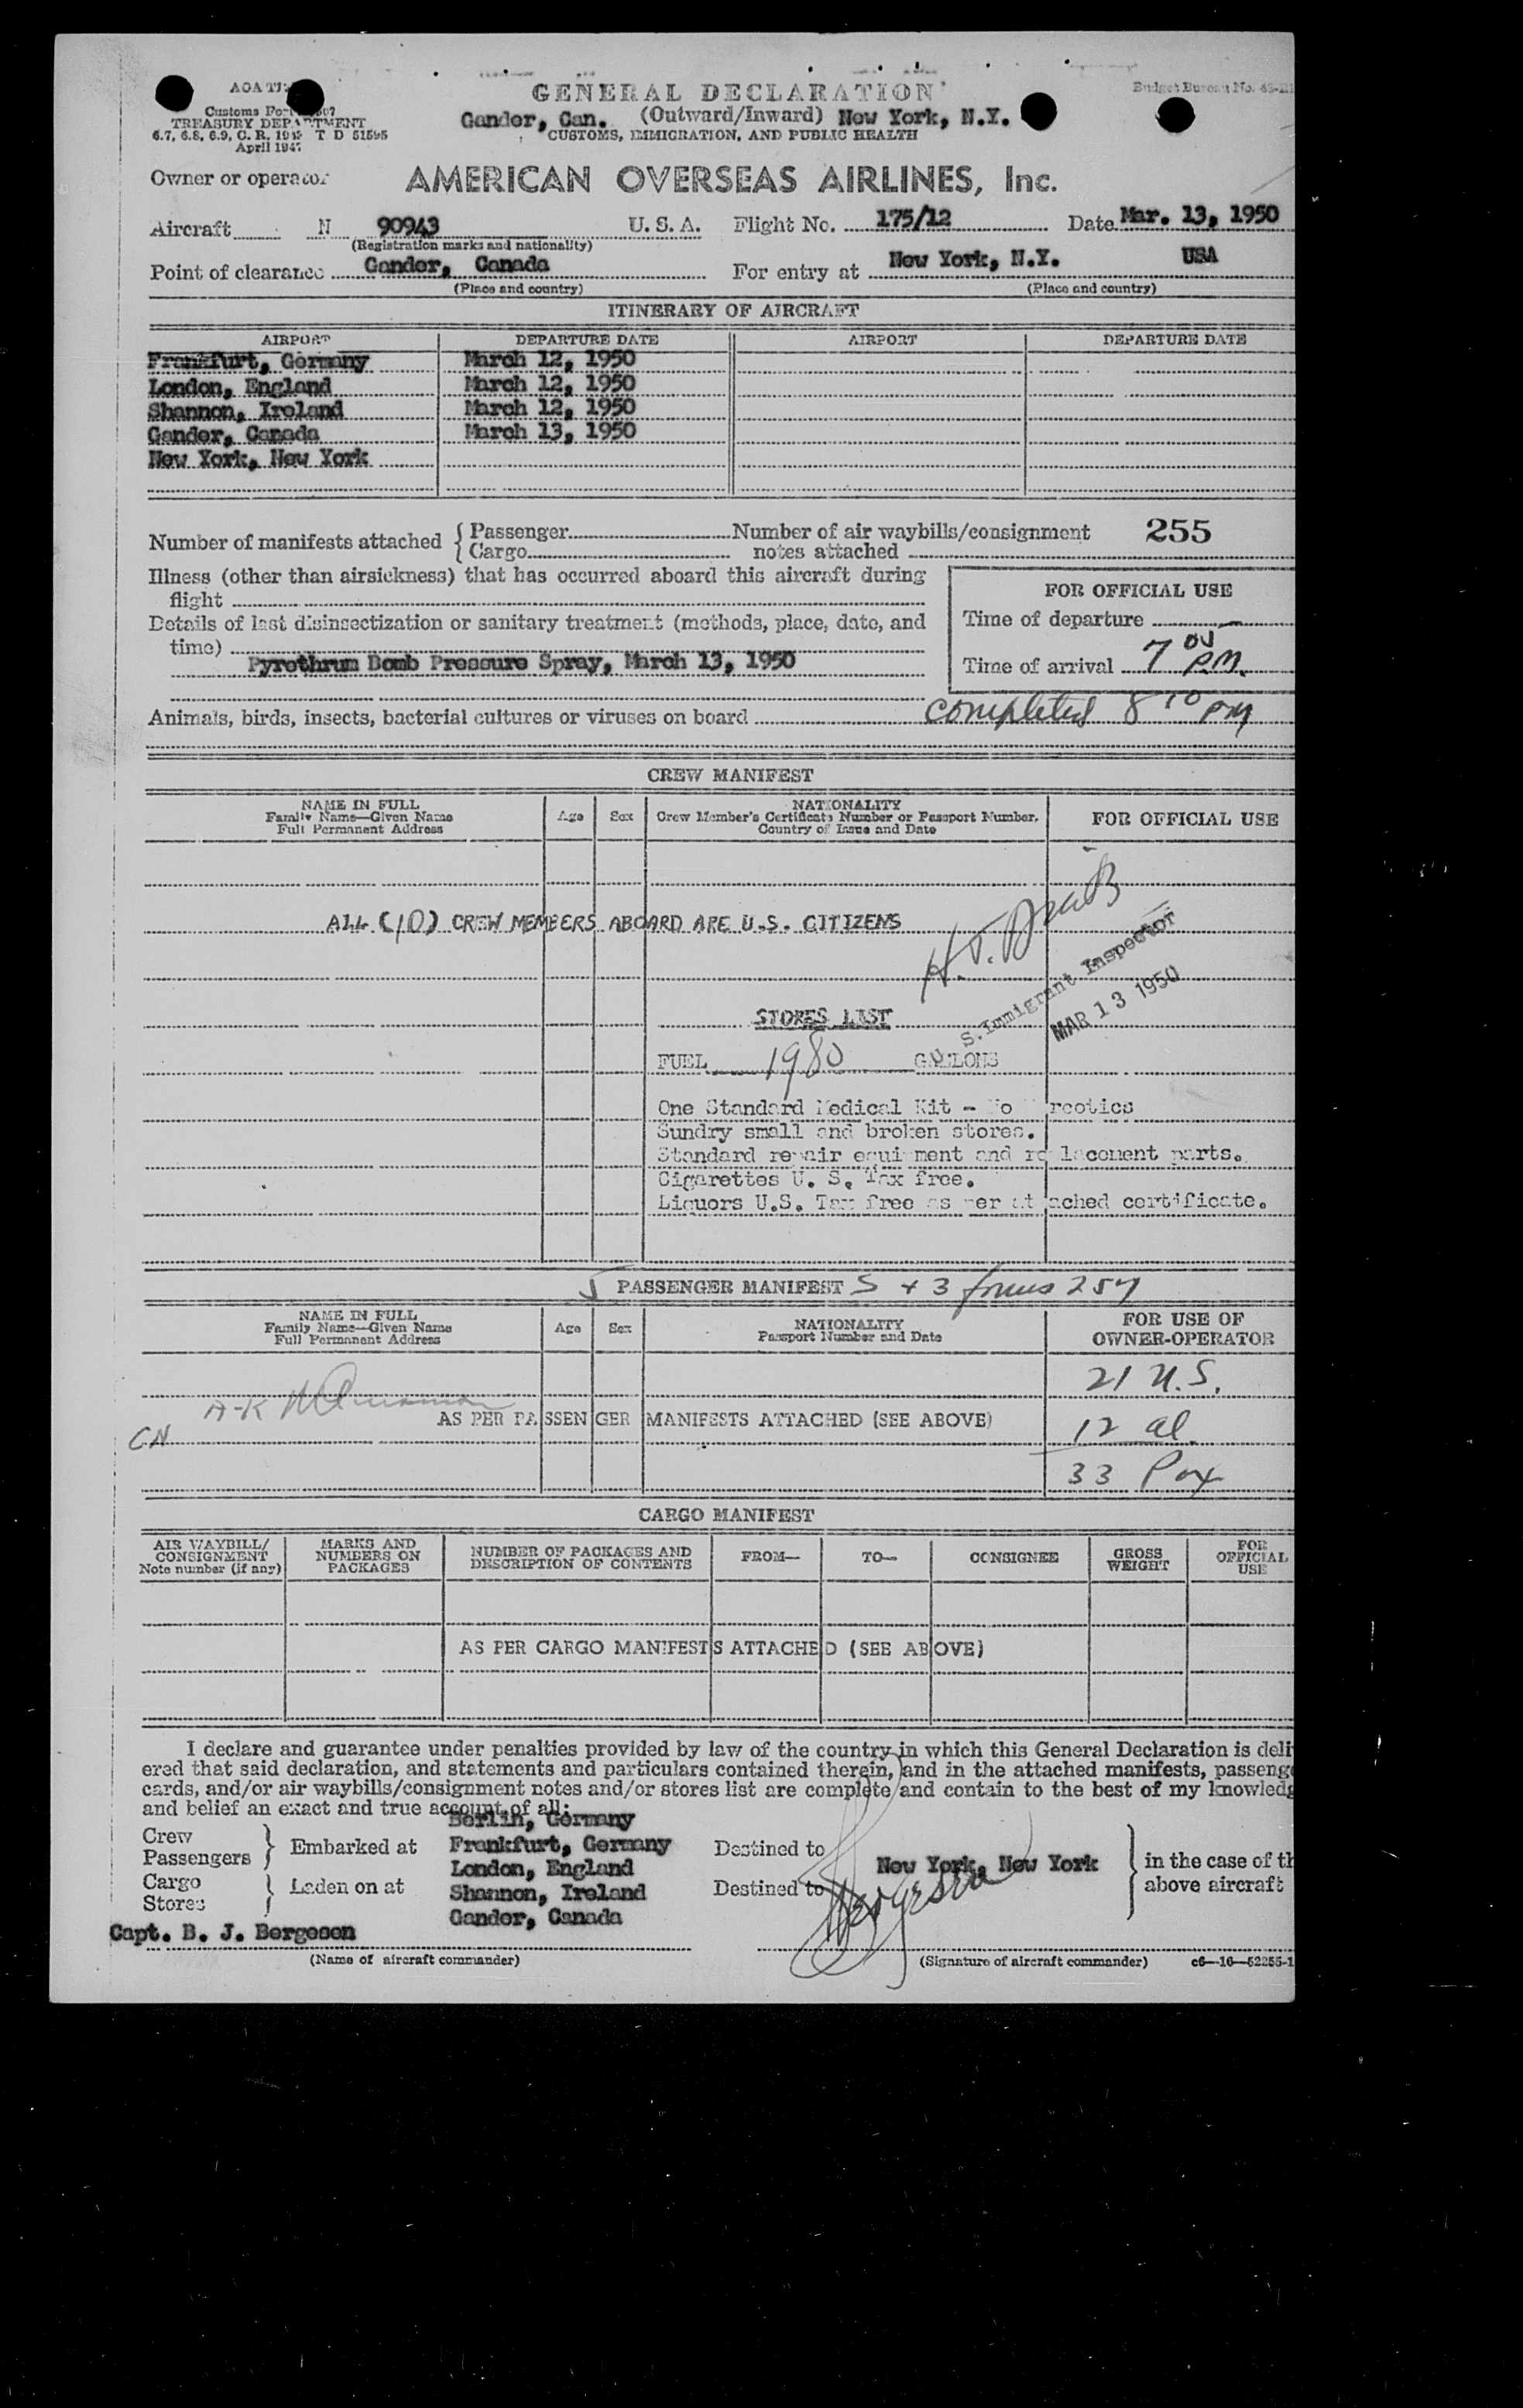 GENERAL DECLARATION
Budget Bureau No.
Customs Form
TREASURY DEPARTMENT
6.7, 6.8, 6.9, C. R. T D 51595
April 1947
Gander, Can. (Outward/Inward) New York, N.Y.
CUSTOMS, IMMIGRATION, AND PUBLIC HEALTH
Owner or operator AMERICAN OVERSEAS AIRLINES, Inc.
Aircraft N 90943 U. S. A. Flight No. 175/12 Date Mar. 13, 1950
(Registration marks and nationality)
Point of clearance Gander, Canada For entry at New York, N.Y. USA
(Place and country) (Place and country)
ITINERARY OF AIRCRAFT
AIRPORT DEPARTURE DATE AIRPORT DEPARTURE DATE
Frankfurt, Germany March 12, 1950
London, England March 12, 1950
Shannon, Ireland March 12, 1950
Gander, Canada March 13, 1950
New York, New York
Number of manifests attached { Passenger Number of air waybills/consignment 255
Cargo notes attached
Illness (other than airsickness) that has occurred aboard this aircraft during
flight
FOR OFFICIAL USE
Details of last disinsectization or sanitary treatment (methods, place, date, and
time)
Time of departure —
Pyrethrum Bomb Pressure Spray, March 13, 1950
Time of arrival 7 00 P.M.
Animals, birds, insects, bacterial cultures or viruses on board
completed 8 10 PM
CREW MANIFEST
NAME IN FULL Age Sex NATIONALITY FOR OFFICIAL USE
Family Name—Given Name Crew Member's Certificate Number or Passport Number,
Full Permanent Address Country of Issue and Date
ALL (10) CREW MEMBERS ABOARD ARE U.S. CITIZENS
U. S. Immigrant Inspector
MAR 13 1950
STORES LIST
FUEL 1980 GALLONS
One Standard Medical Kit - No Narcotics
Sundry small and broken stores.
Standard repair equipment and replacement parts.
Cigarettes U. S. Tax free.
Liquors U.S. Tax free as per attached certificate.
PASSENGER MANIFEST 5 + 3 forms 257
NAME IN FULL Age Sex NATIONALITY FOR USE OF
Family Name—Given Name Passport Number and Date OWNER-OPERATOR
Full Permanent Address
21 U.S.
A-K
AS PER PASSENGER MANIFESTS ATTACHED (SEE ABOVE) 12 al.
CN
33 Pax
CARGO MANIFEST
AIR WAYBILL/ CONSIGNMENT Note number (if any) MARKS AND NUMBERS ON PACKAGES NUMBER OF PACKAGES AND DESCRIPTION OF CONTENTS FROM— TO— CONSIGNEE GROSS WEIGHT FOR OFFICIAL USE
AS PER CARGO MANIFESTS ATTACHED (SEE ABOVE)
I declare and guarantee under penalties provided by law of the country in which this General Declaration is deliv
ered that said declaration, and statements and particulars contained therein, and in the attached manifests, passenge
cards, and/or air waybills/consignment notes and/or stores list are complete and contain to the best of my knowledg
and belief an exact and true account of all:
Berlin, Germany
Crew Passengers } Embarked at Frankfurt, Germany Destined to
London, England New York, New York } in the case of th
Cargo Stores } Laden on at Shannon, Ireland Destined to above aircraft
Gander, Canada
Capt. B. J. Bergesen
Bergesen
(Name of aircraft commander) (Signature of aircraft commander) c6—16—52255-1